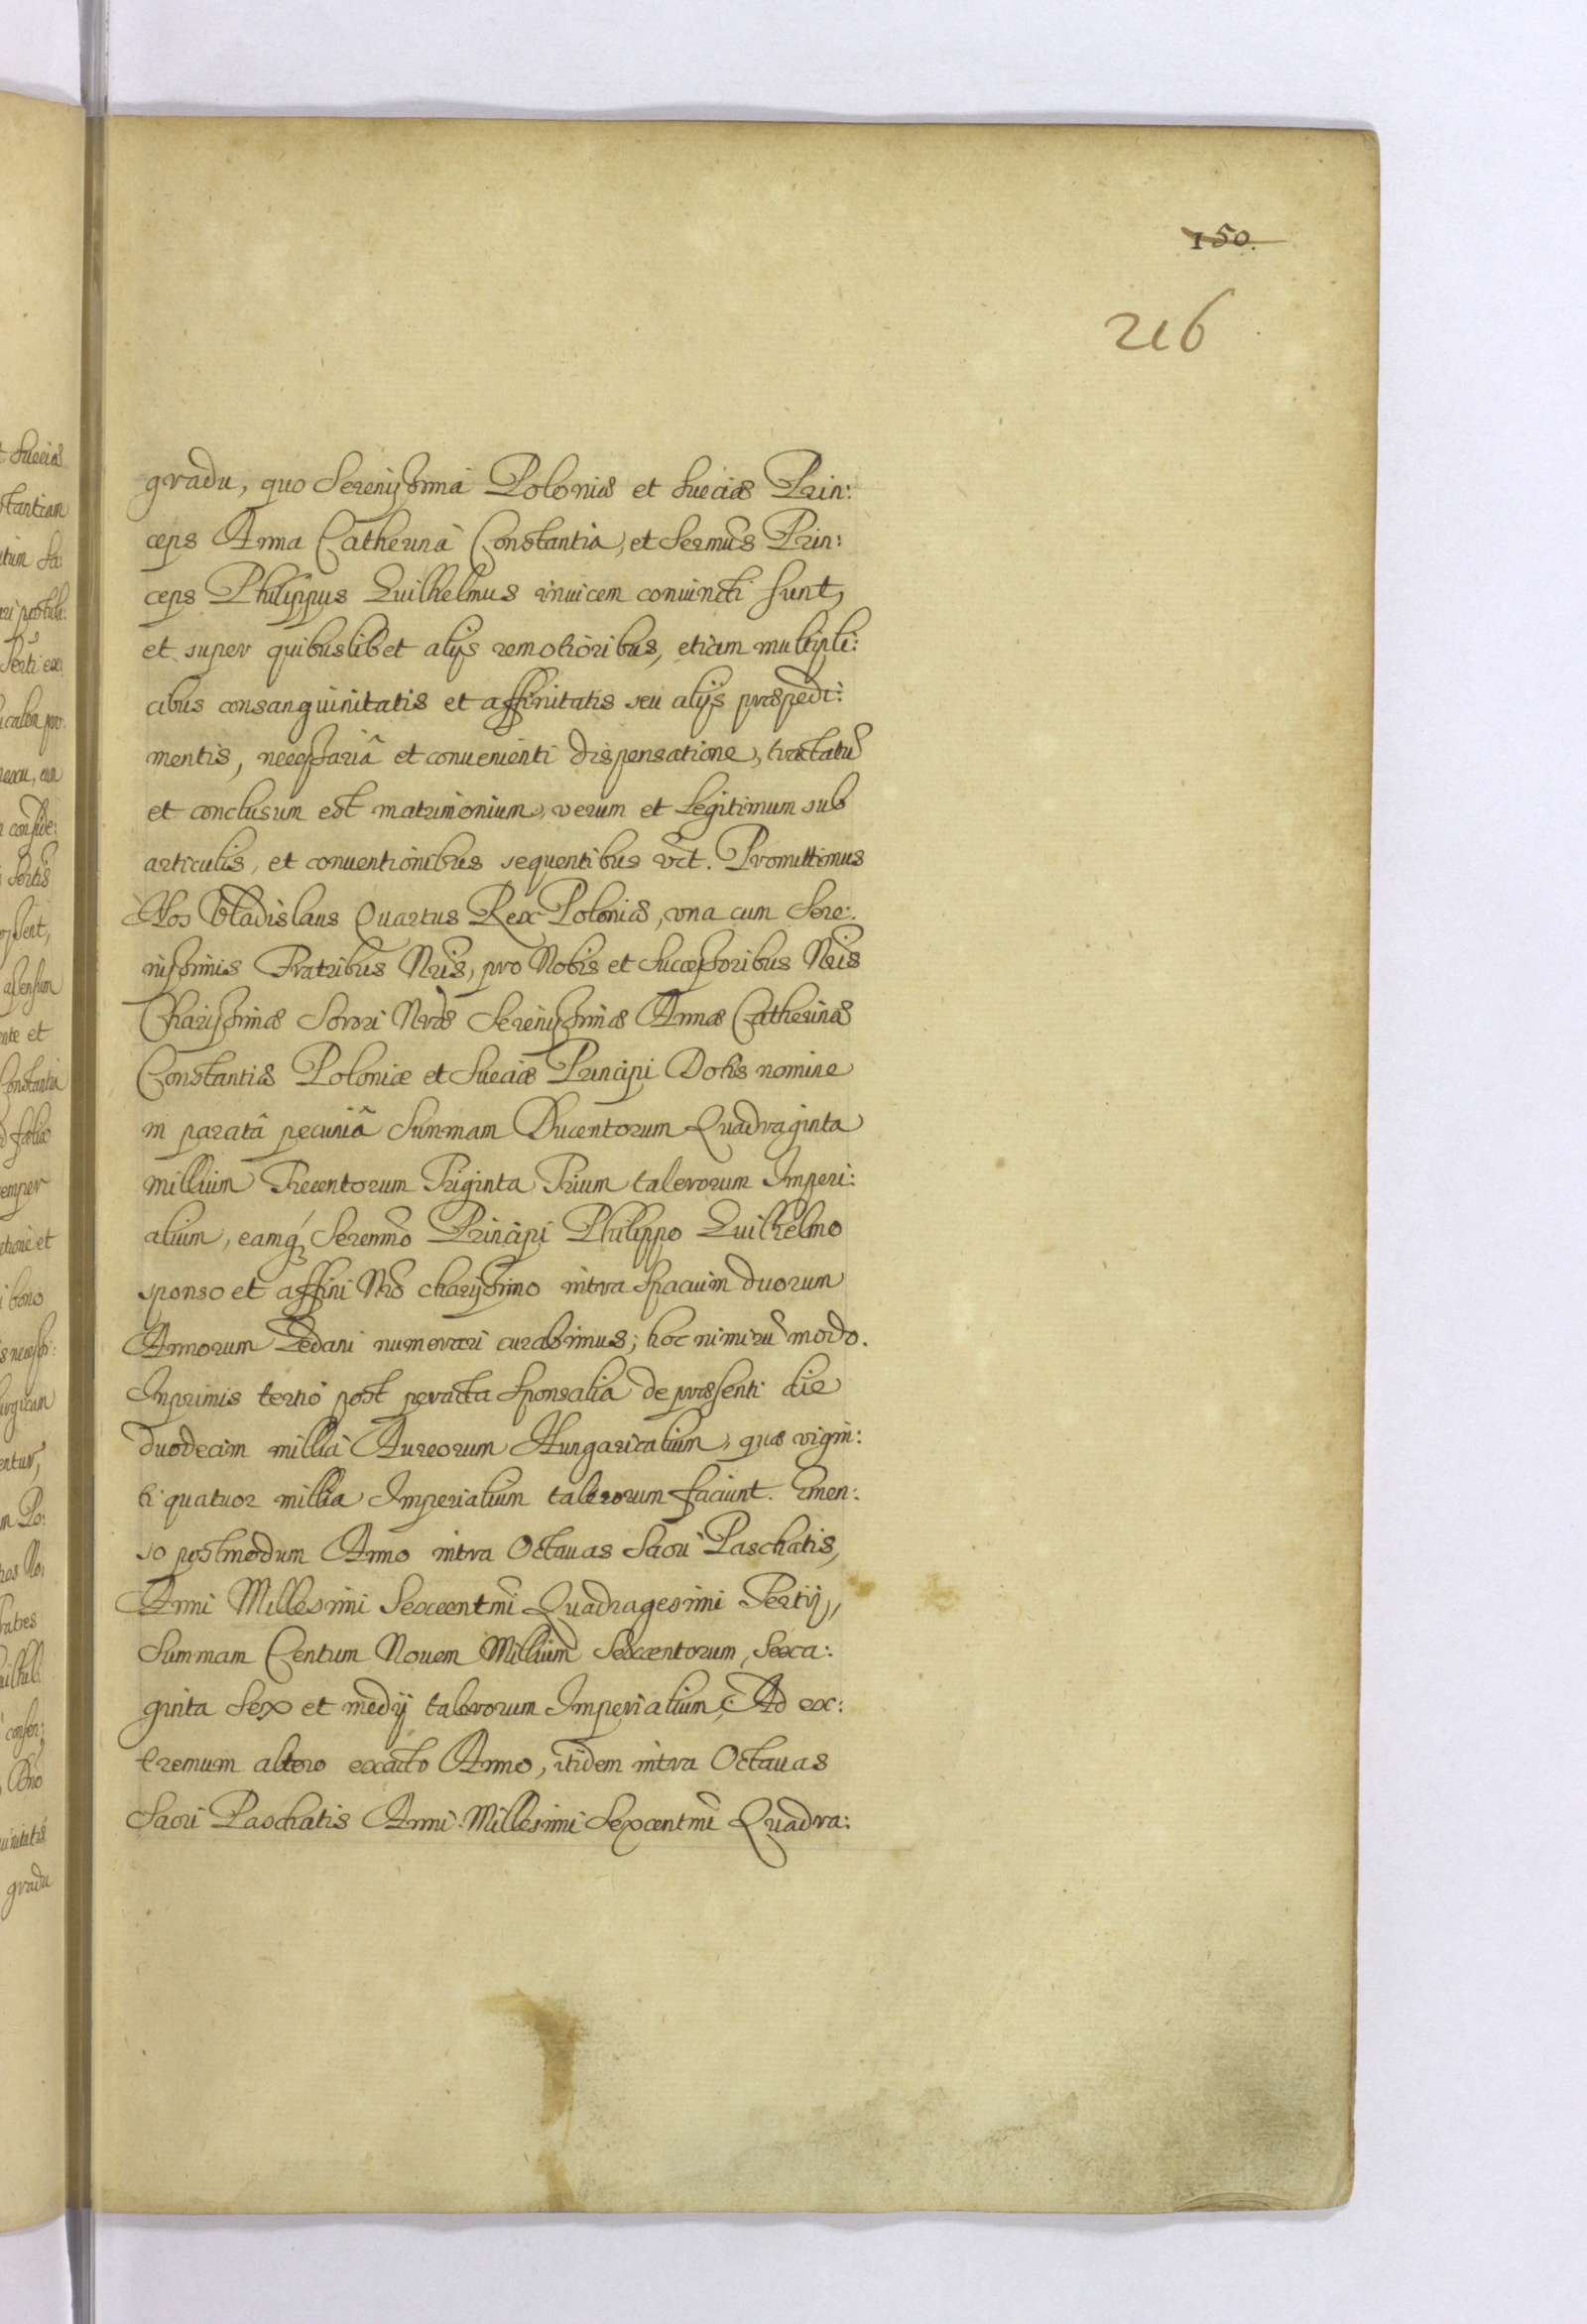 150.
216
gradu, quo Serenissima Poloniæ et Sueciæ Prin:
ceps Anna Catherina Constantia, et Sermûs Prin:
ceps Philippus Guilhelmus inuicem coniuncti sunt,
et super quibuslibet alijs remotioribus, etiam multipli:
cibus consanguinitatis et affinitatis seu alijs præpedi:
mentis, necessariâ et conuenienti dispensatione, tractatũ
et conclusum est matrimonium, verum et Legitimum sub
articulis, et conuentionibus sequentibus vt. Promittimus
Nos Vladislaus Quartus Rex Poloniæ, vna cum Sere:
nissimis Fratribus Nris, pro Nobis et Successoribus Nris
Charissimæ Sorori Nræ Serenissimæ Annæ Catherinæ
Constantiæ Poloniæ et Sueciæ Principi Dotis nomine
in paratâ pecuniâ Summam Ducentorum Quadraginta
millium Trecentorum Triginta Trium talerorum Imperi:
alium, eamq́ Serenmo Principi Philippo Guilhelmo
sponso et affini Nro charissimo intra spacium duorum
Annorum Gedani numerari curabimus; hoc nimirũ modo.
Inprimis tertio post peracta Sponsalia de præsenti die
duodecim millia Aureorum Hungaricalium, quæ vigin:
ti quatuor millia Imperialium talerorum faciunt. Emen:
so postmodum Anno intra Octauas Sacri Paschatis,
Anni Millesimi Sexcentmi Quadragesimi Tertij,
Summam Centum Nouem Millium Sexcentorum, Sexa:
ginta Sex et medij talerorum Imperialium; Ad ex:
tremum altero exacto Anno, itidem intra Octauas
Sacri Paschatis Anni Millesimi Sexcentmi Quadra: